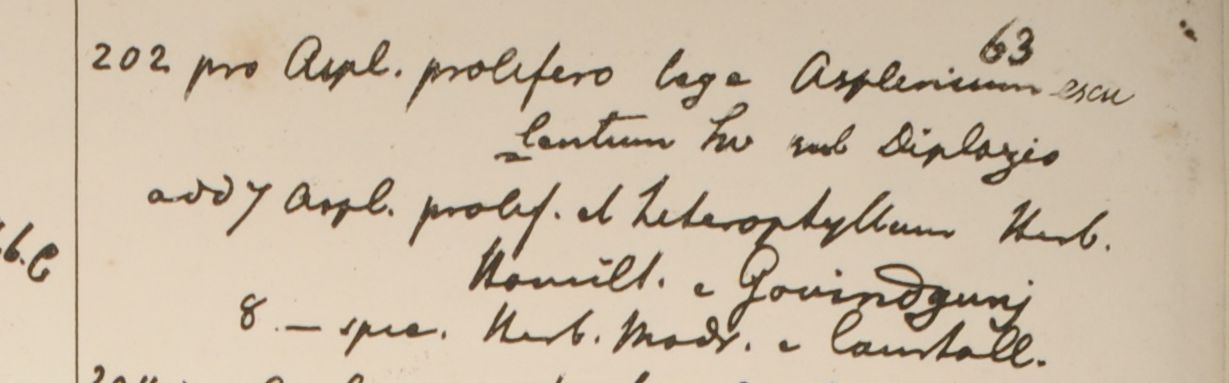 63
202 pro Aspl. prolifero lege Asplenium escu
lentum Sw sub Diplazio
add 7 Aspl. prolif. et heterophyllum Herb.
Hamilt. e Govindgunj
6. C
8. — spec. Herb. Madr. e Courtall.